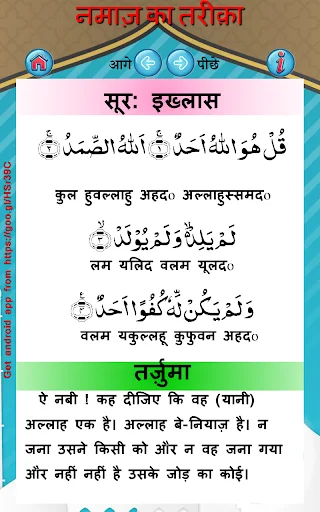 नमाज़ का तरीक़ा
आगे पीछे
सूर: इख्लास
قُلْ هُوَ اللّٰهُ اَحَدٌ ۚ﴿۱﴾ اَللّٰهُ الصَّمَدُ ۚ﴿۲﴾
कुल हुवल्लाहु अहद० अल्लाहुस्समद०
لَمْ يَلِدْ ۙ وَلَمْ يُوْلَدْ ۙ﴿۳﴾
लम यलिद वलम यूलद०
وَلَمْ يَكُنْ لَّهٗ كُفُوًا اَحَدٌ ﴿۴﴾
वलम यकुल्लहू कुफुवन अहद०
तर्जुमा
ऐ नबी ! कह दीजिए कि वह (यानी)
अल्लाह एक है। अल्लाह बे-नियाज़ है। न
जना उसने किसी को और न वह जना गया
और नहीं नहीं है उसके जोड़ का कोई।
Get android app from https://goo.gl/HSr39C